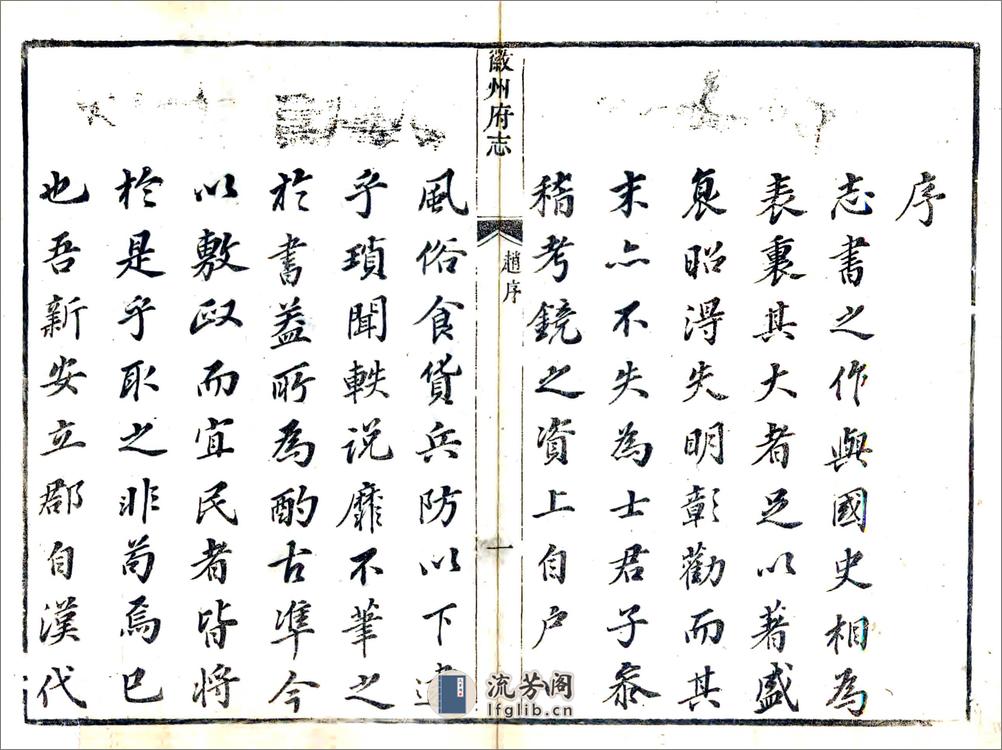 序
志書之作與國史相為
表裏其大者足以著盛
良昭得失明彰勸而其
末亦不失為士君子叅
稽考鏡之資上自户
徽州府志
趙序
一
風俗食貨兵防以下逮
乎瑣聞軼说靡不筆之
於書葢所為酌古準今
以敷政而宜民者皆將
於是乎取之非苟焉已
也吾新安立郡自漢代
流芳阁
lfglib.cn